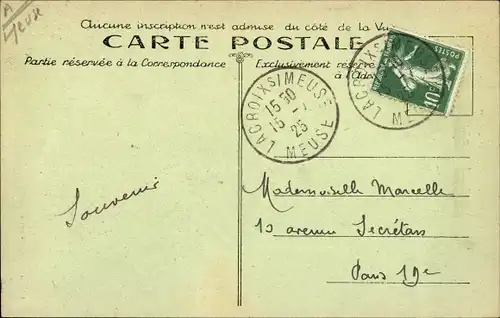 A
Meuse
Aucune inscription n'est admise du côté de la Vue
CARTE POSTALE
Partie réservée à la Correspondance
Exclusivement réservé
à l'Adr
LACROIX S/MEUSE
15 30
15 - 
25
MEUSE
LACROIX S
ME
POSTES
10c
Souvenir
Mademoiselle Marcelle
12 avenue Secrétan
Paris 19e